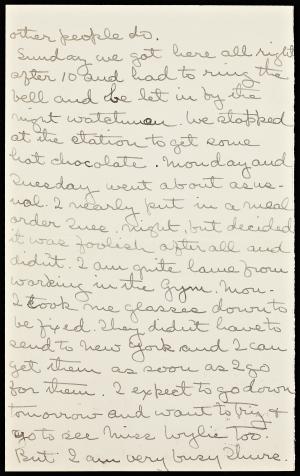 other people do.
Sunday we got here all right
after 10 and had to ring the
bell and be let in by the
night watchman. We stopped
at the station to get some
hot chocolate. Monday and
Tuesday went about as us-
ual. I nearly put in a meal
order Tues. night, but decided
it was foolish after all and
didn't. I am quite lame from
working in the Gym. Mon-
I took me glasses down to
be fixed. They didn't have to
send to New York and I can
get them as soon as I go
for them. I expect to go down
tomorrow and want to try &
go to see Miss Wylie too.
But I am very busy Thurs.